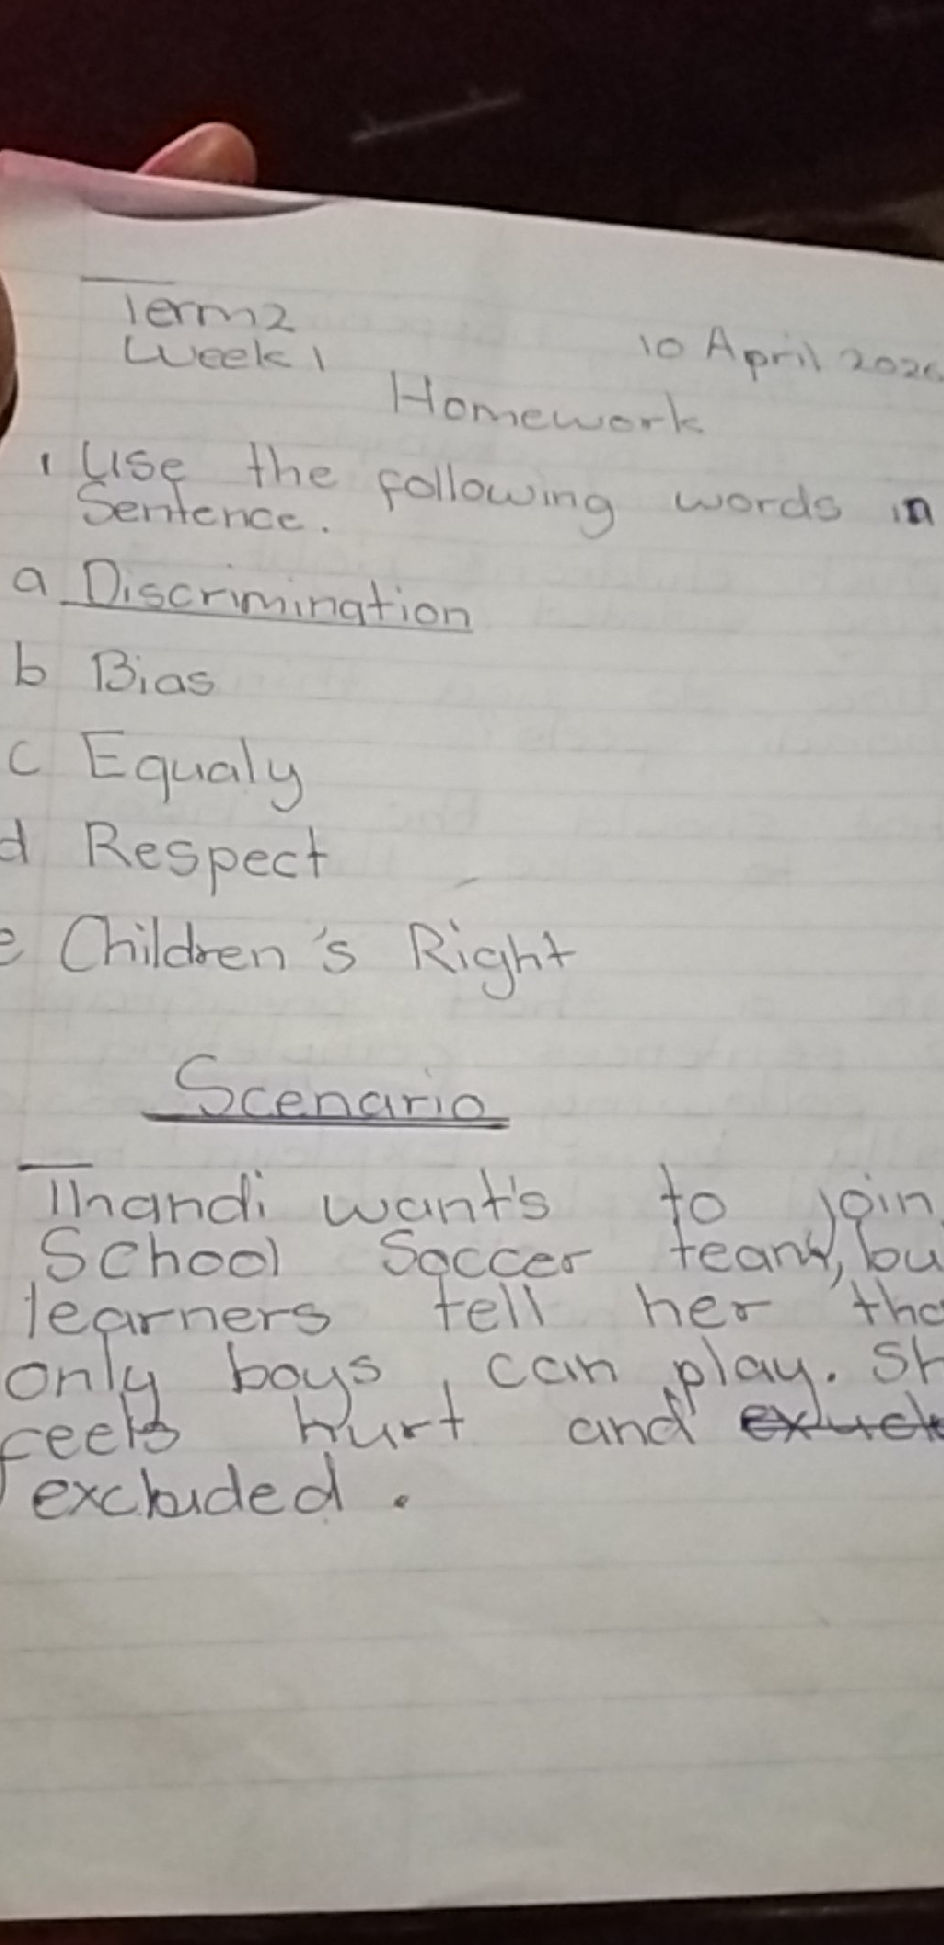 Term 2
Week 1
10 April 202
Homework
1 Use the following words in
Sentence.
a Discrimination
b Bias
c Equaly
d Respect
e Children's Right
Scenario
Thandi want's to join
School Soccer team, bu
learners tell her tha
only boys can play. Sh
feels hurt and
excluded.